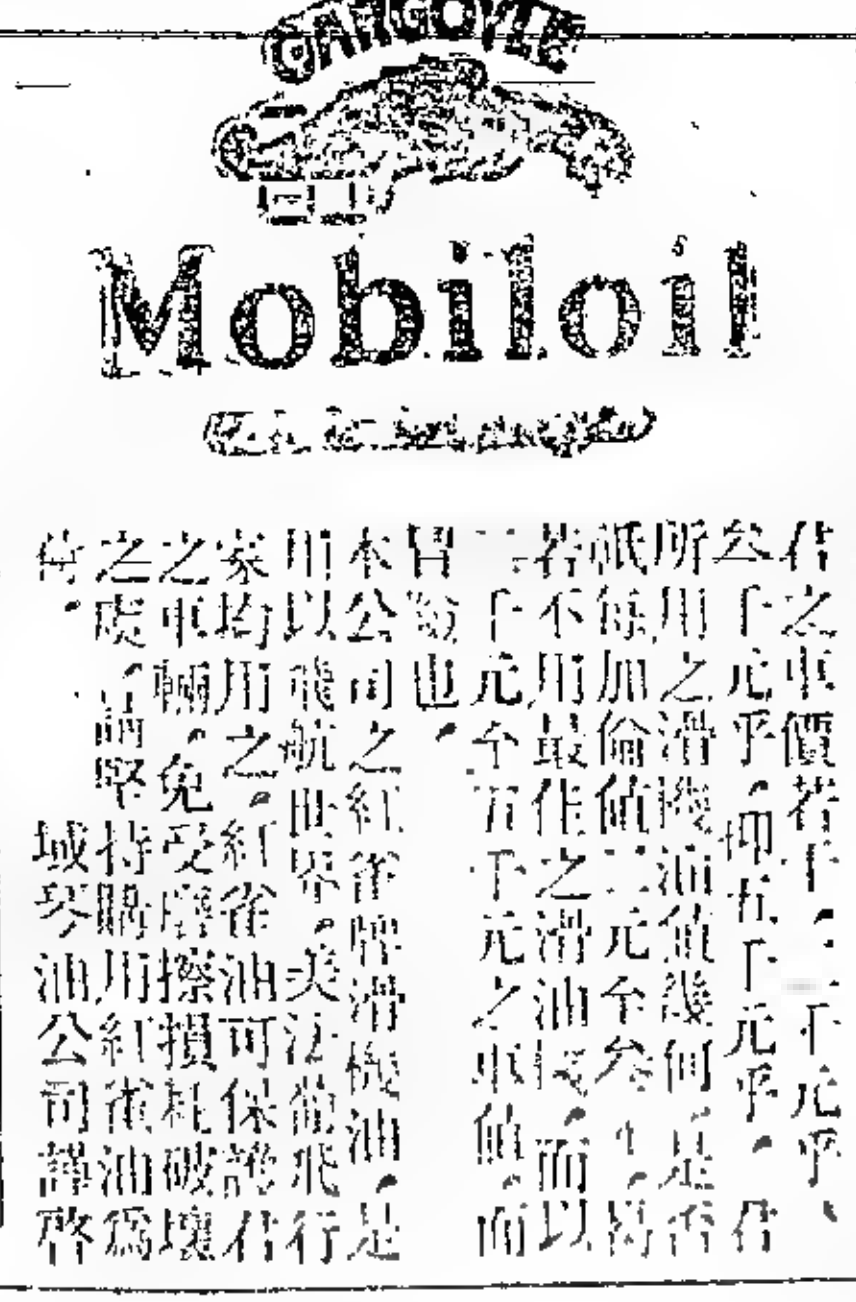 GARGOYLE
Mobiloil
君之車價若干、二千元乎、
叁千元乎、抑五千元乎、君
所用之滑機油值幾何、是否
祇每加倫值二元至叁元、為
若不用最佳之滑機油、而以
二千元至五千元之車值、而
冒險也、
本公司之紅雀牌滑機油、是
用以飛航世界、美法徳飛行
家均用之、紅雀油可保護君
之車輛、免受磨擦損耗破壞
之處、請堅持購用紅雀油為
荷、
域琴油公司謹啓